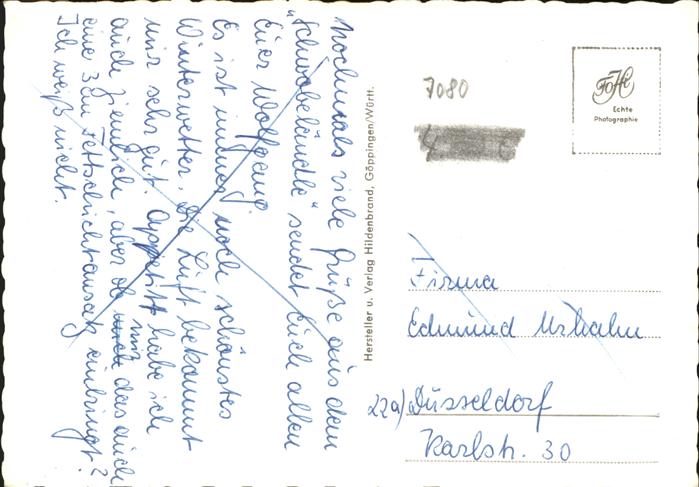 Nochmals viele Grüße aus dem
"Schwobeländle" sendet Euch allen
Euer Wolfgang.
Es ist immer noch schönstes
Winterwetter. Die Luft bekommt
mir sehr gut. Appetitt habe ich
auch ziemlich, aber ob mir das auch
eine 3 cm Fettschichtansatz einbringt?
Ich weiß nicht.
Hersteller u. Verlag Hildenbrand, Göppingen/Württ.
7080
FoHi
Echte
Photographie
Firma
Edmund Urhahn
22a) Düsseldorf
Karlstr. 30